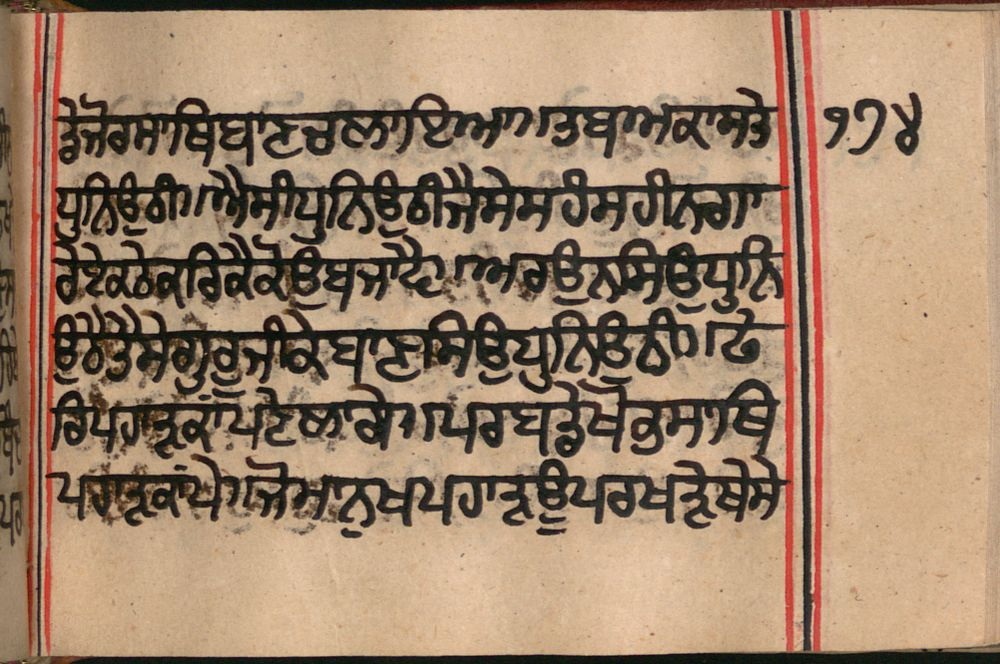 ਡੇਜੋਰਸਾਥਿਬਾਣਚਲਾਇਆ॥ਤਬਆਕਾਸਤੇ ੧੭੪
ਧੁਨਿਉਠੀ॥ਐਸੀਧੁਨਿਉਠੀਜੈਸੇਸਹੰਸਹੀਨਗਾ
ਰੇਟੇਕਠੇਕਰਿਕੈਕੋਉਬਜਾਵੈ॥ਅਰਉਨਸਿਉਧੁਨਿ
ਉਠੈਤੈਸੇਗੁਰੂਜੀਕੇਬਾਣਸਿਉਧੁਨਿਉਠੀ॥ਫੇ
ਰਿਪਹਾੜਕਾਂਪਣੇਲਾਗੇ॥ਪਰਬਡੇਖੋਭਸਾਥਿ
ਪਹਾੜਕਾਂਪੇ॥ਜੋਮਾਨੁਖਪਹਾੜਉਪਰਖੜੇਥੇਸੇ